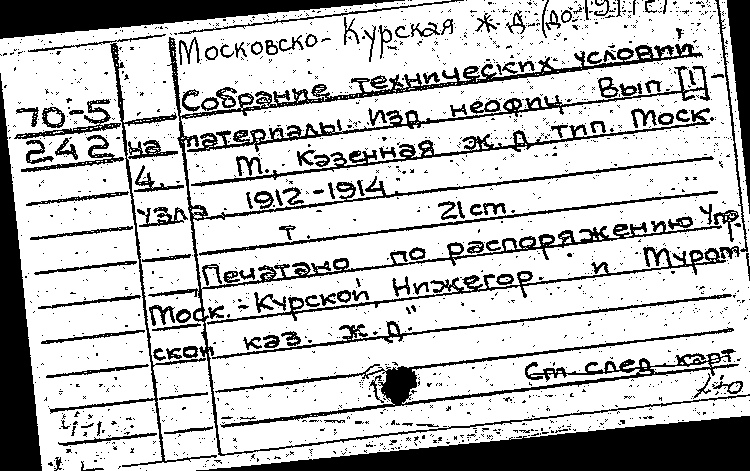 Московско-Курская ж д (до 1917 г)
70-5
242
Собрание технических условий
на материалы. Изд. неофиц. Вып. [1]-
4. М., Казенная ж. д. тип. Моск.
узла. 1912-1914.
т. 21 cm.
"Печатано по распоряжению Упр.
Моск.-Курской, Нижегор. и Муром-
ской каз. ж.д."
См. след. карт.